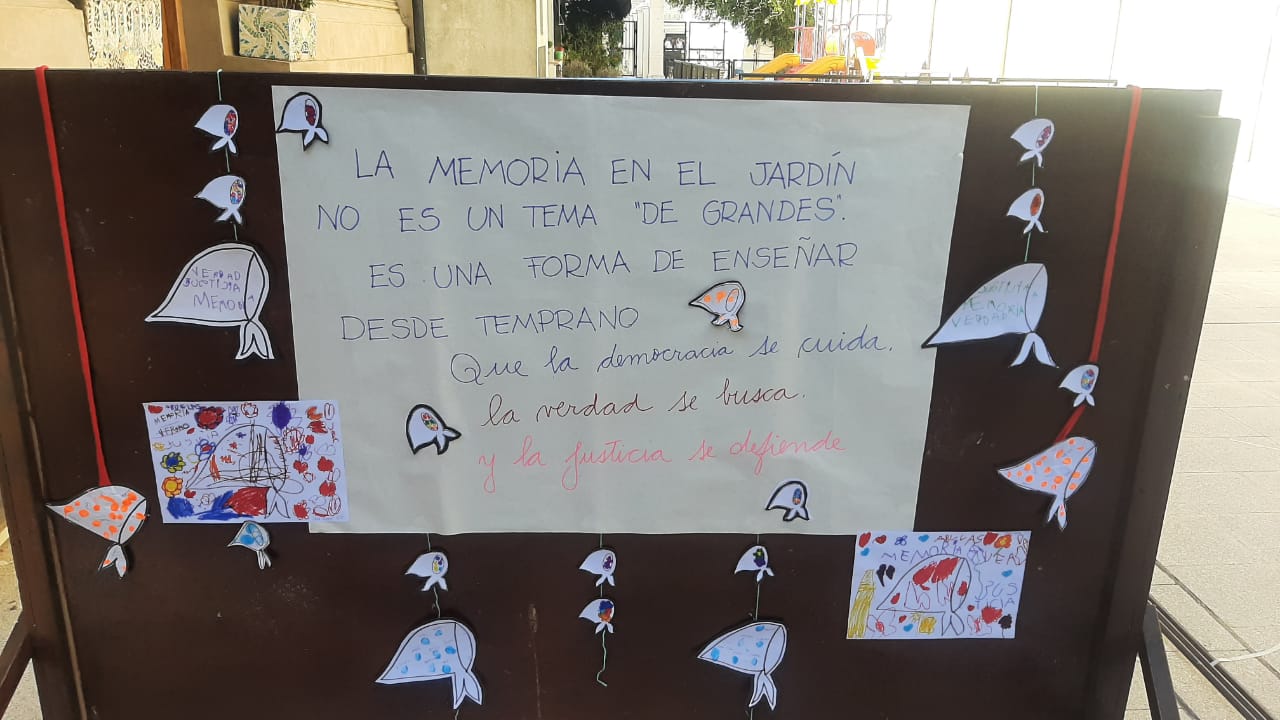 LA MEMORIA EN EL JARDÍN
NO ES UN TEMA "DE GRANDES".
ES UNA FORMA DE ENSEÑAR
DESDE TEMPRANO
Que la democracia se cuida,
la verdad se busca,
y la justicia se defiende
VERDAD
MEMORIA
VERDAD
MEMORIA
MEMORIA